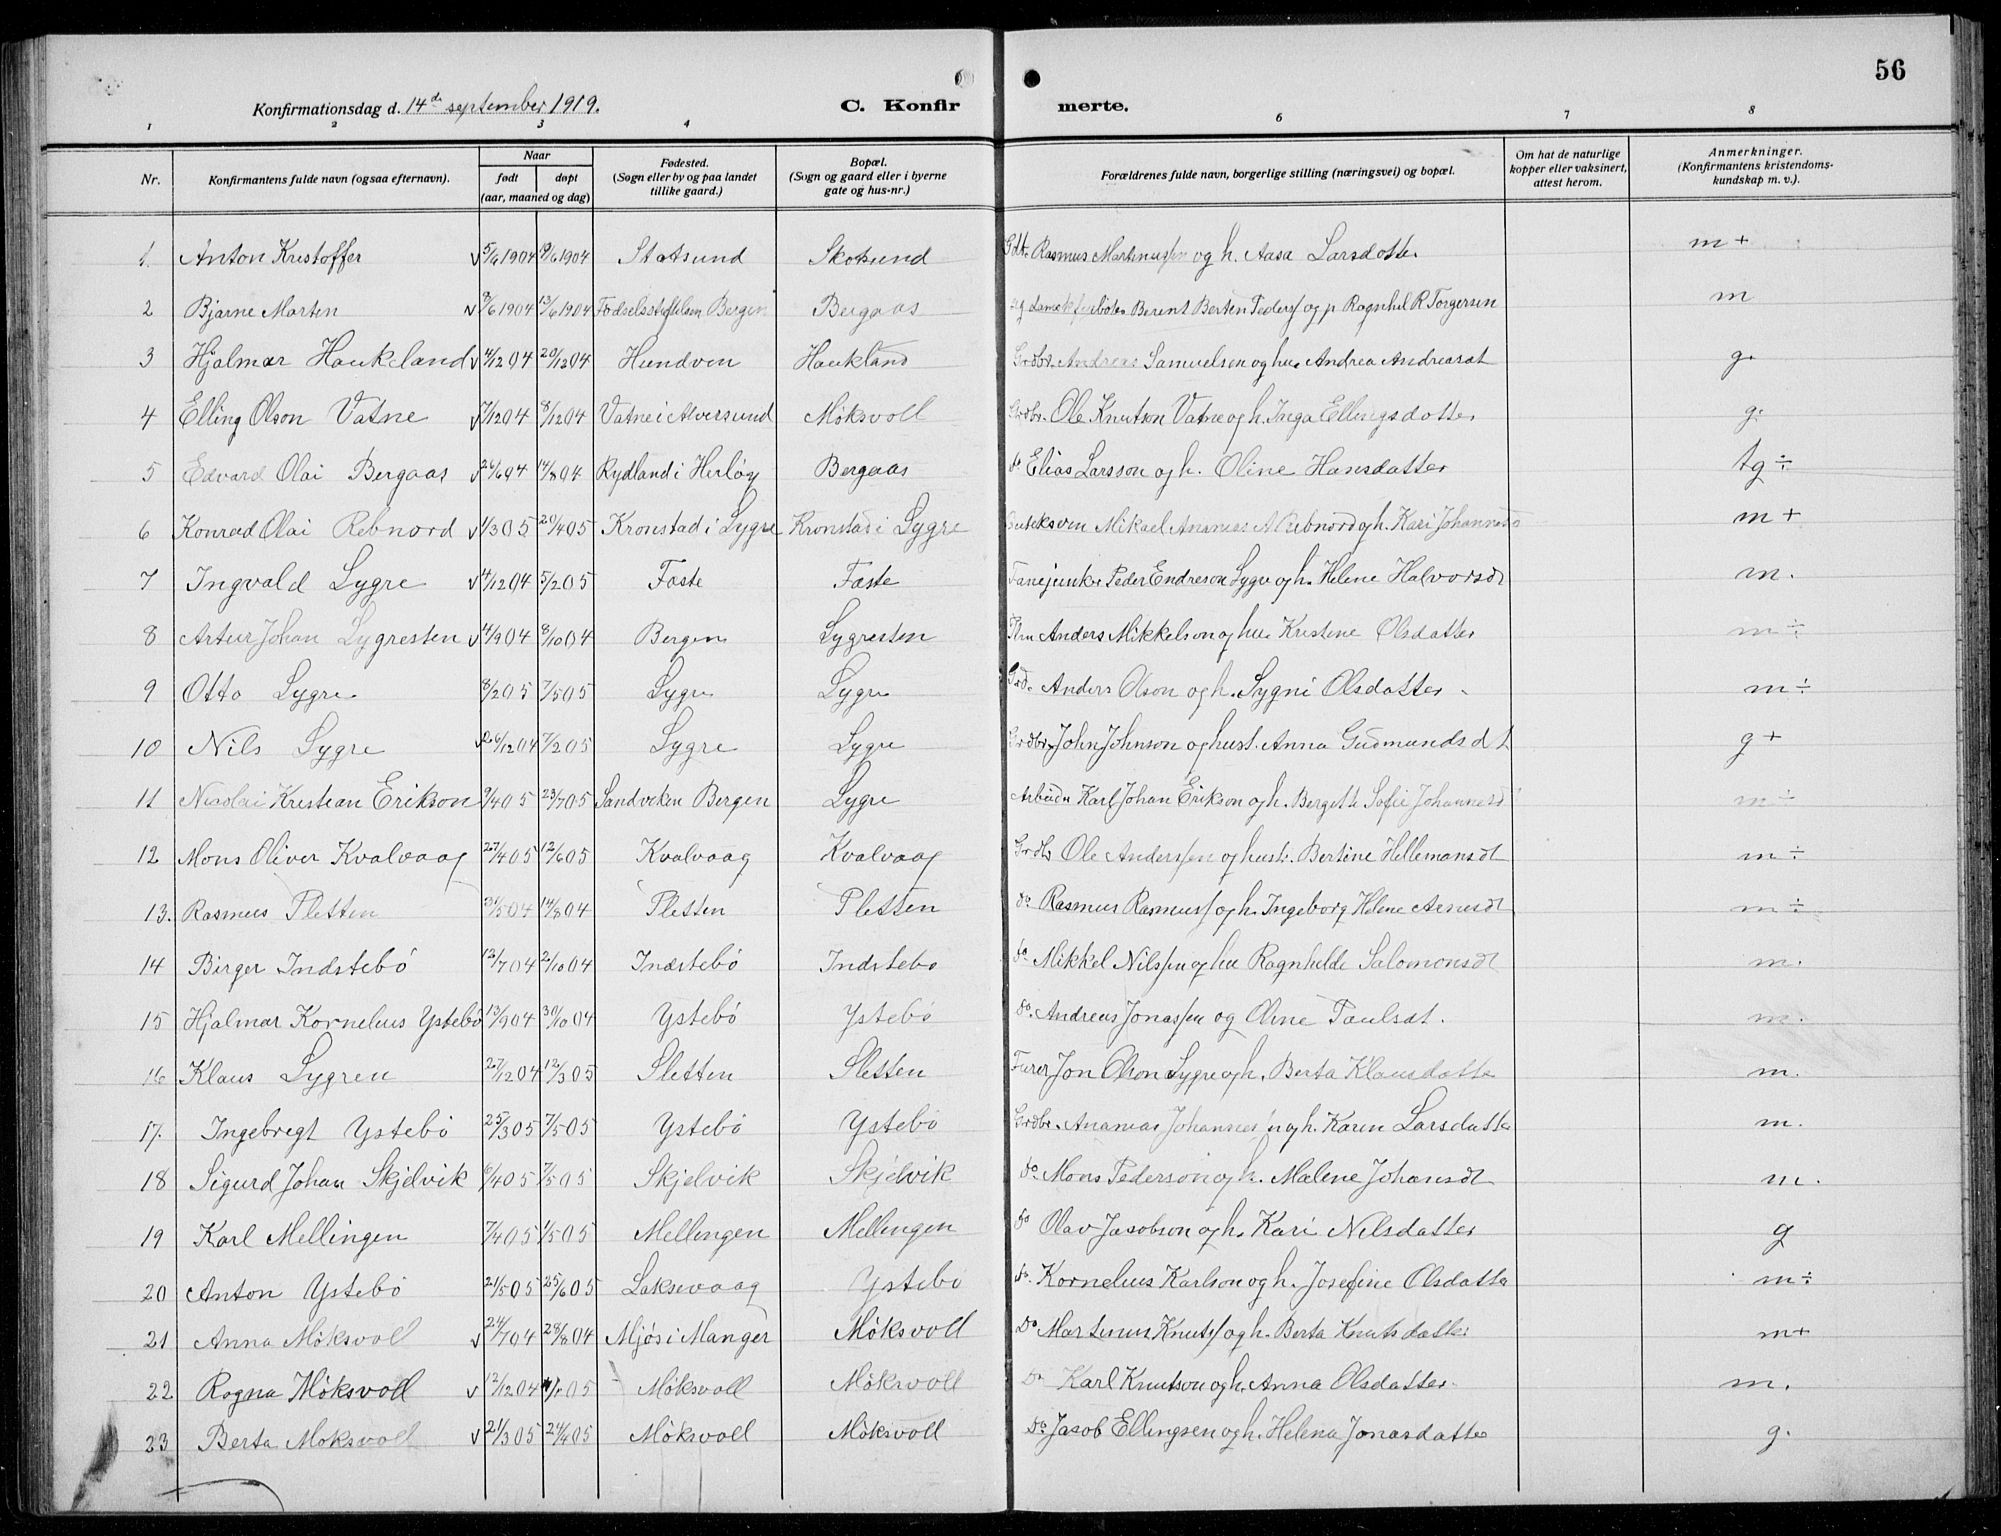 56
Konfirmationsdag d. 14de september 1919. C. Konfirmerte.
1 2 3 4 6 7 8
Nr. Konfirmantens fulde navn (ogsaa efternavn). Naar født døpt (aar, maaned og dag) Fødested. (Sogn eller by og paa landet tillike gaard.) Bopæl. (Sogn og gaard eller i byerne gate og hus-nr.) Forældrenes fulde navn, borgerlige stilling (næringsvei) og bopæl. Om hat de naturlige kopper eller vaksinert, attest herom. Anmerkninger. (Konfirmantens kristendoms-kundskap m. v.).
1. Anton Kristoffer 5/6 1904 19/6 1904 Statsund Skotsund Rasmus Martinussen og h. Aasa Larsdotter m +
2 Bjarne Marten 8/6 1904 13/6 1904 Fødselsstiftelsen Bergen Bergaas Berent Berten Peders og p Ragnhil R Torgersen m
3 Hjalmar Haukeland 4/12 04 20/12 04 Hundven Haukland Grdbr. Andreas Samuelsen og hu. Andrea Andreasdt g.
4 Elling Olson Vatne 7/12 04 8/12 04 Vatne i Alversund Møksvoll Grdbr. Ole Knutson Vatne og h. Inga Ellingsdotter g.
5 Edvard Olai Bergaas 26/6 04 14/8 04 Rydland i Herløy Bergaas do Elias Larsson og h. Oline Hansdatter tg ÷
6 Konrad Olai Rebnord 1/3 05 20/4 05 Kronstad i Lygre Kronstad i Lygre Mikael Ananias A Rebnord og h. Kari Johannesd m +
7 Ingvald Lygre 4/12 04 5/2 05 Faste Faste Fanejunker Peder Endreson Lygre og h. Helene Halvorsdt m.
8 Artur Johan Lygresten 4/9 04 8/10 04 Bergen Lygresten Anders Mikkelson og hu. Kristine Olsdatter m ÷
9 Otto Lygre 8/2 05 7/5 05 Lygre Lygre Grd. Anders Olson og h. Sygni Olsdatter m ÷
10 Nils Lygre 26/12 04 7/2 05 Lygre Lygre Grdbr. John Johnson og hust. Anna Gudmundsdt g +
11 Nicolai Kristian Erikson 9/4 05 23/7 05 Sandviken Bergen Lygre Arbeider Karl Johan Erikson og h. Bergitte Sofie Johannesd m ÷
12 Mons Oliver Kvalvaag 27/4 05 12/6 05 Kvalvaag Kvalvaag Grdb Ole Anderssen og hustr. Bertine Hellemansdt m ÷
13. Rasmus Sletten 21/5 04 14/8 04 Sletten Sletten do Rasmus Rasmuss og h. Ingeborg Helene Arnesdt m ÷
14 Birger Indstebø 12/7 04 2/10 04 Indstebø Indstebø do Mikkel Nilssen og hu Ragnhilde Salomonsdt m.
15 Hjalmar Kornelius Ystebø 13/9 04 30/10 04 Ystebø Ystebø do. Andreas Jonassen og Oline Paulsdt. m.
16 Klaus Lygren 27/12 04 12/3 05 Sletten Sletten Furer Jon Olson Lygre og h. Berta Klausdatter m.
17. Ingebregt Ystebø 25/3 05 7/5 05 Ystebø Ystebø Grdbr. Ananias Johannes'n og h. Karen Larsdatter m.
18 Sigurd Johan Skjelvik 6/4 05 7/5 05 Skjelvik Skjelvik do. Mons Pederson og h. Malene Johansdt m.
19 Karl Mellingen 7/4 05 1/5 05 Mellingen Mellingen do Olav Jacobson og h. Kari Nilsdatter g
20 Anton Ystebø 21/5 05 25/6 05 Laksevaag Ystebø do. Kornelius Karlson og h. Josefine Olsdatter m ÷
21 Anna Møksvoll 24/7 04 28/8 04 Mjøs i Manger Møksvoll do Martinus Knuts og h. Berta Knutsdatter m+
22 Ragna Møksvoll 12/12 04 05 Møksvoll Møksvoll do Karl Knutson og h. Anna Olsdatter m.
23 Berta Møksvoll 21/3 05 24/4 05 Møksvoll Møksvoll do. Jacob Ellingsen og h. Helena Jonasdatter g.